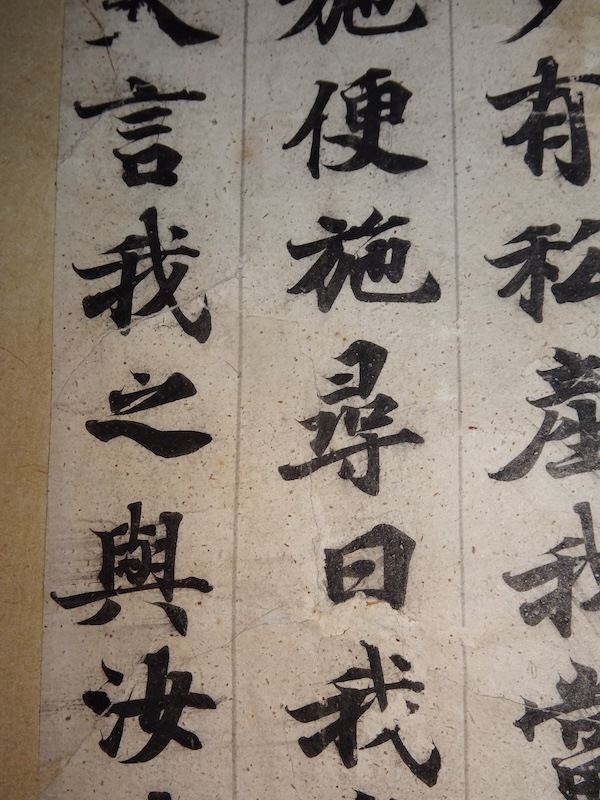 有私產我當
施便施尋曰我
言我之與汝